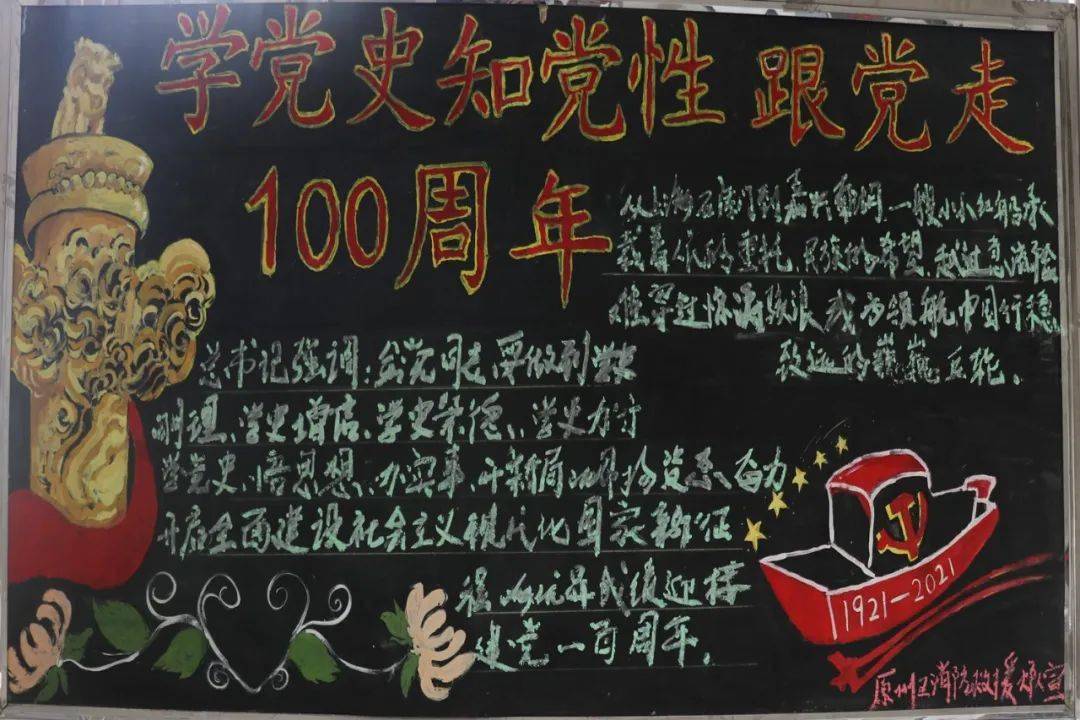 学党史知党性 跟党走
100周年
从上海石库门到嘉兴南湖,一艘小小红船承
载着人民的重托、民族的希望,越过急流险
滩,穿过惊涛骇浪,成为领航中国行稳
致远的巍巍巨轮。
总书记强调:全党同志要做到学史
明理、学史增信、学史崇德、学史力行
学党史、悟思想、办实事、开新局 奋力
开启全面建设社会主义现代化国家新征
程,以优异成绩迎接
建党一百周年。
1921-2021
原州区消防救援 宣